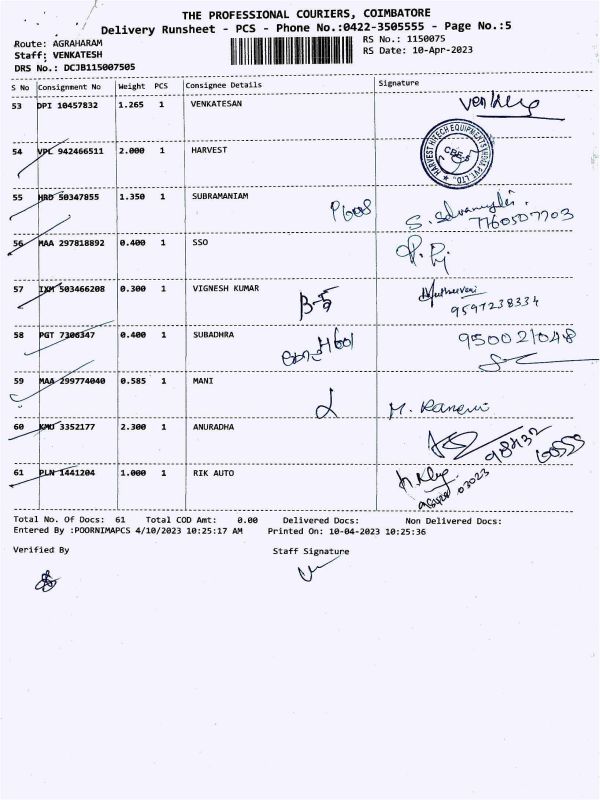 THE PROFESSIONAL COURIERS, COIMBATORE
Delivery Runsheet - PCS - Phone No.:0422-3505555 - Page No.:5
Route: AGRAHARAM RS No.: 1150075
Staff: VENKATESH RS Date: 10-Apr-2023
DRS No.: DCJB115007505
S No Consignment No Weight PCS Consignee Details Signature
53 DPI 10457832 1.265 1 VENKATESAN
54 VPL 942466511 2.000 1 HARVEST
HARVEST HITECH EQUIPMENTS INDIA PVT LTD. CBE
55 HRD 50347855 1.350 1 SUBRAMANIAM P608
7760507703
56 MAA 297818892 0.400 1 SSO
57 IXM 503466208 0.300 1 VIGNESH KUMAR B-5
9597238334
58 PGT 7306347 0.400 1 SUBADHRA H601 950021048
59 MAA 299774040 0.585 1 MANI
60 KMU 3352177 2.300 1 ANURADHA
61 PLN 1441204 1.000 1 RIK AUTO
Total No. Of Docs: 61 Total COD Amt: 0.00 Delivered Docs: Non Delivered Docs:
Entered By :POORNIMAPCS 4/10/2023 10:25:17 AM Printed On: 10-04-2023 10:25:36
Verified By Staff Signature